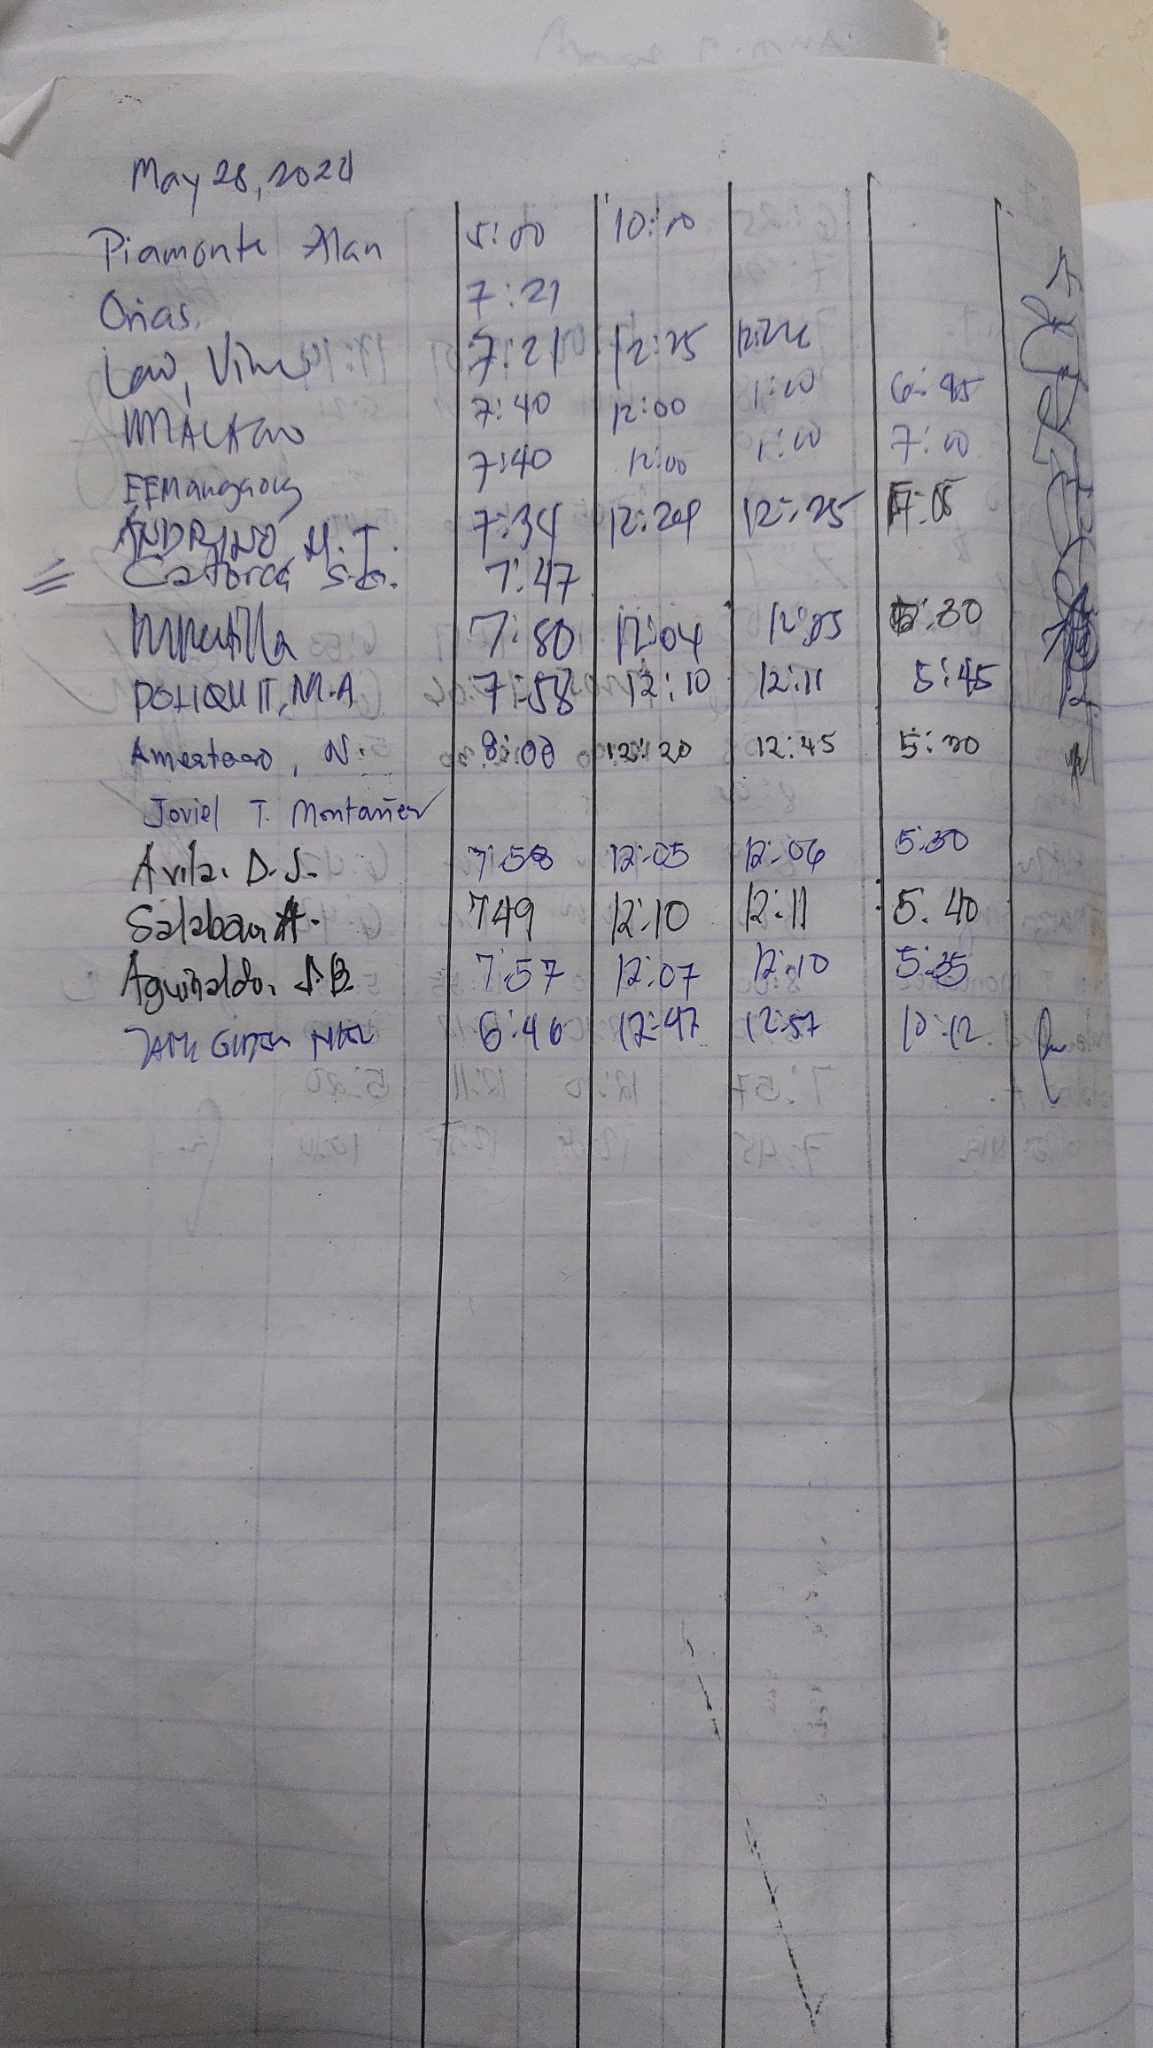 May 28, 2024
Piamonte Alan 5:00 10:00
Orias. 7:21
Law, 7:21 12:25
7:40 12:00 1:00 6:45
EFMangaong 7:40 12:00 1:00 7:00
ANDRINO, M.T. 7:34 12:24 12:25 7:05
Catorce S. 7:47
7:50 12:04 12:05 5:30
POLIQUIT, M.A 7:58 12:10 12:11 5:45
N. 8:00 12:20 12:45 5:30
Joviel T. Montañer
Avila, D.J. 7:58 12:05 12:06 5:30
Salaban A. 749 12:10 12:11 5:40
Aguinaldo, J.B. 7:57 12:07 12:10 5:35
6:46 12:47 12:57 10:12